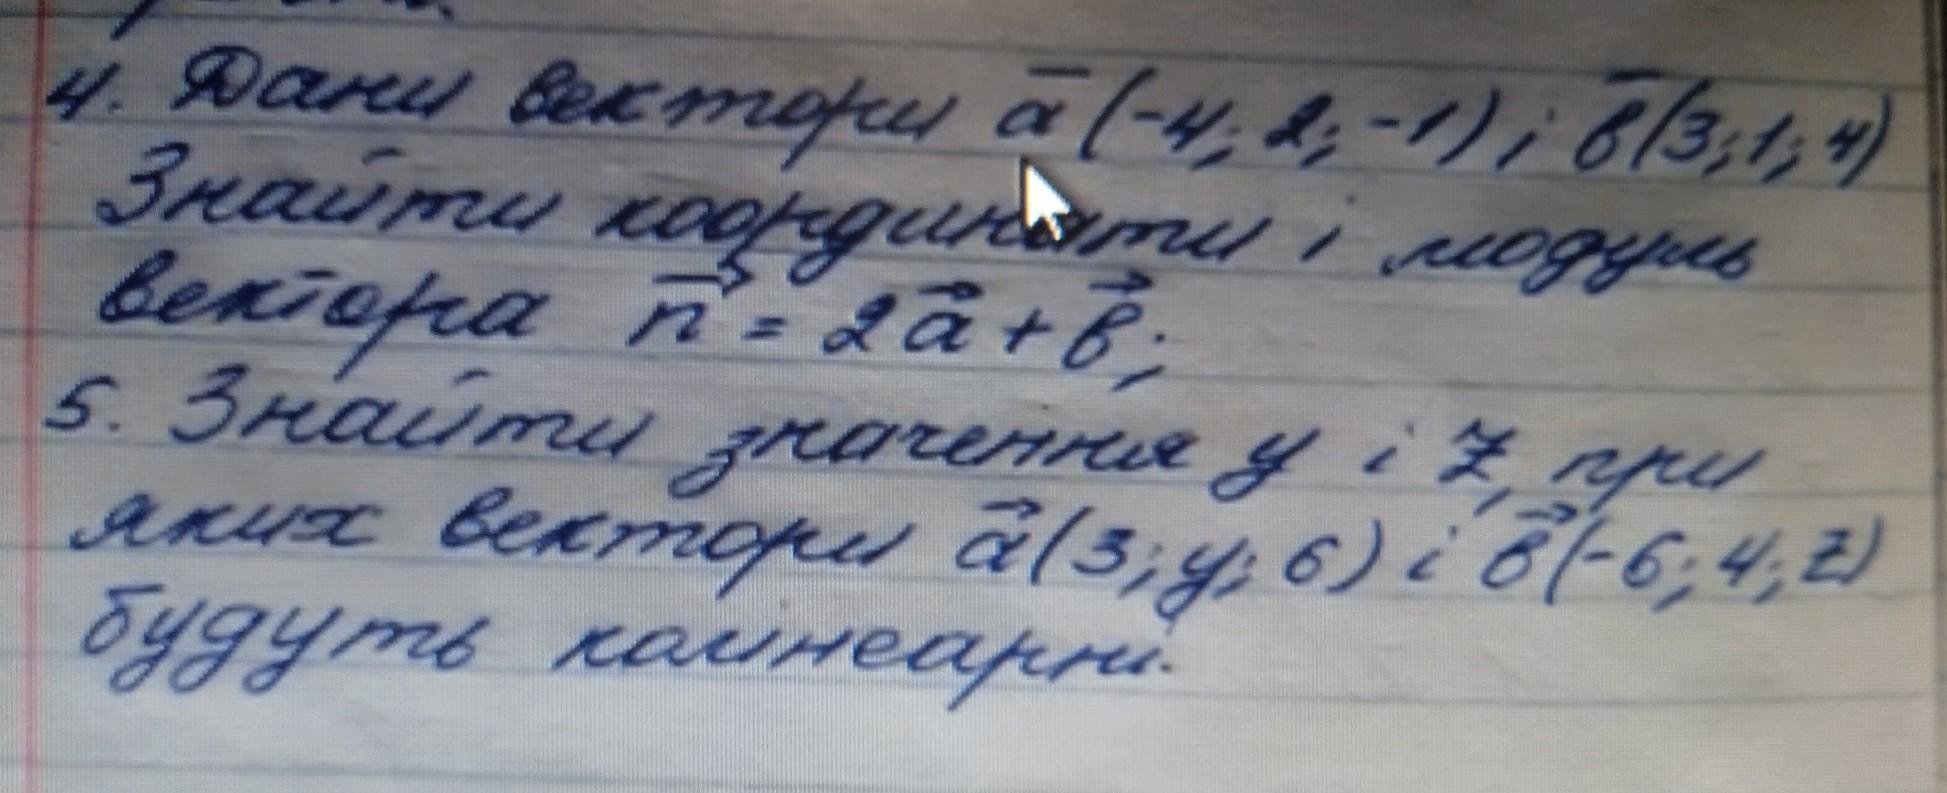 4. Дани вектори a̅ (-4; 2; -1) і b̅ (3; 1; 4)
Знайти координати і модуль
вектора n⃗ = 2a⃗ + b⃗;
5. Знайти значення y і z, при
яких вектори a⃗ (3; y; 6) і b⃗ (-6; 4; z)
будуть колінеарні.